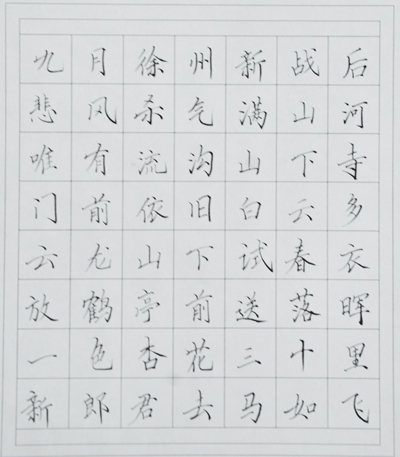 九月徐州新战后
悲风杀气满山河
唯有流沟山下寺
门前依旧白云多
云龙山下试春衣
放鹤亭前送落晖
一色杏花三十里
新郎君去马如飞